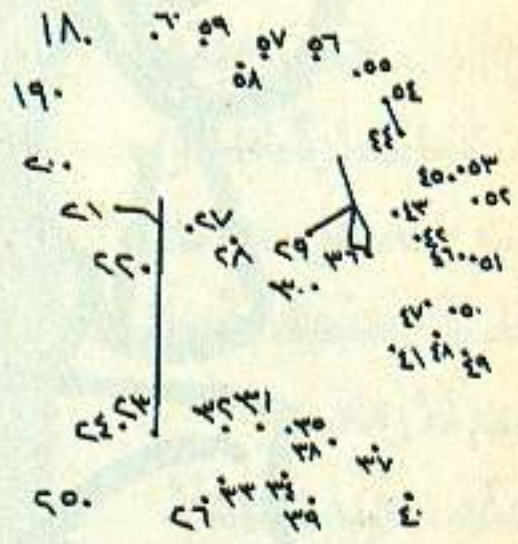 ١٨ ٦٠ ٥٩ ٥٧ ٥٦
٥٨ ٥٥
١٩ ٥٤
٤٤
٢٠ ٤٥ ٥٣
٢١ ٢٧ ٤٣ ٥٢
٢٢ ٢٨ ٢٩ ٣٦ ٤٢
٤٦ ٥١
٣٠
٤٧ ٥٠
٤١ ٤٨ ٤٩
٢٤ ٢٣ ٣٢ ٣١ ٣٥
٣٨ ٣٧
٢٥ ٢٦ ٣٣ ٣٤
٣٩ ٤٠